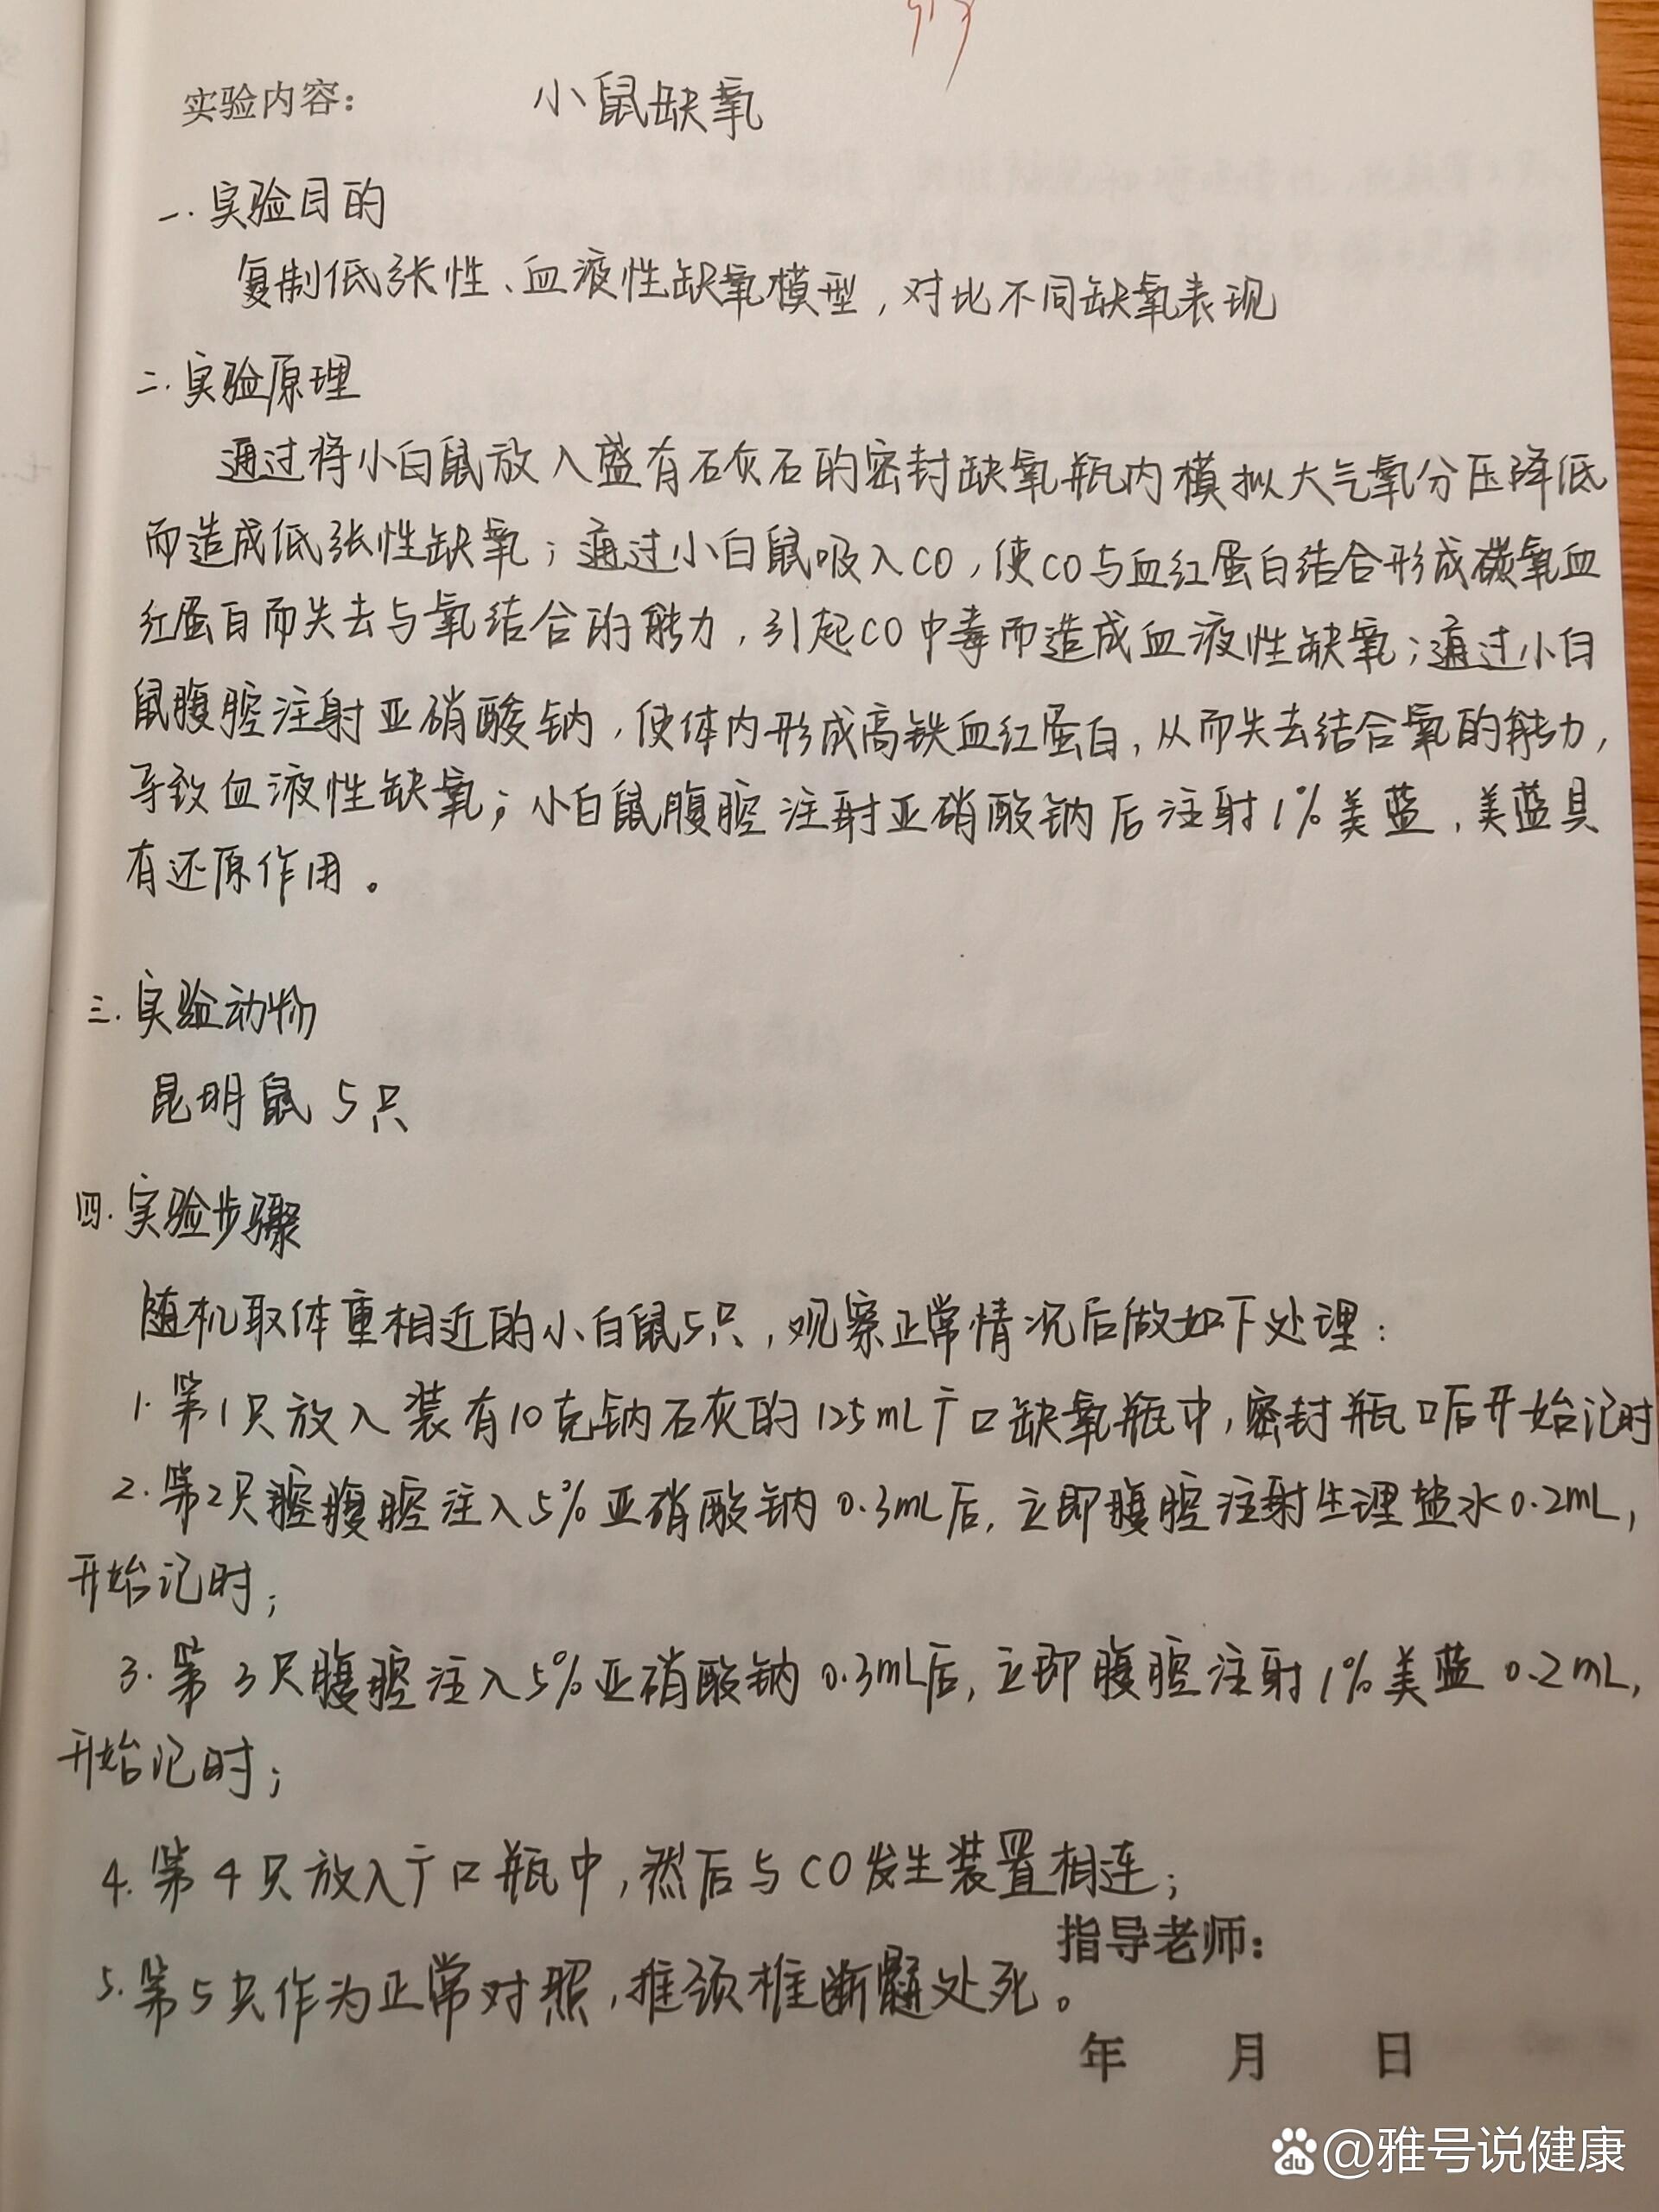 实验内容： 小鼠缺氧
一. 实验目的
复制低张性、血液性缺氧模型，对比不同缺氧表现
二. 实验原理
通过将小白鼠放入盛有石灰石的密封缺氧瓶内模拟大气氧分压降低
而造成低张性缺氧；通过小白鼠吸入CO，使CO与血红蛋白结合形成碳氧血
红蛋白而失去与氧结合的能力，引起CO中毒而造成血液性缺氧；通过小白
鼠腹腔注射亚硝酸钠，使体内形成高铁血红蛋白，从而失去结合氧的能力，
导致血液性缺氧；小白鼠腹腔注射亚硝酸钠后注射1%美蓝，美蓝具
有还原作用。
三. 实验动物
昆明鼠5只
四. 实验步骤
随机取体重相近的小白鼠5只，观察正常情况后做如下处理：
1. 第1只放入装有10克钠石灰的125mL广口缺氧瓶中，密封瓶口后开始记时
2. 第2只腔腹腔注入5%亚硝酸钠0.3mL后，立即腹腔注射生理盐水0.2mL，
开始记时；
3. 第3只腹腔注入5%亚硝酸钠0.3mL后，立即腹腔注射1%美蓝0.2mL，
开始记时；
4. 第4只放入广口瓶中，然后与CO发生装置相连；
指导老师：
5. 第5只作为正常对照，推颈椎断髓处死。
年 月 日
du @雅号说健康